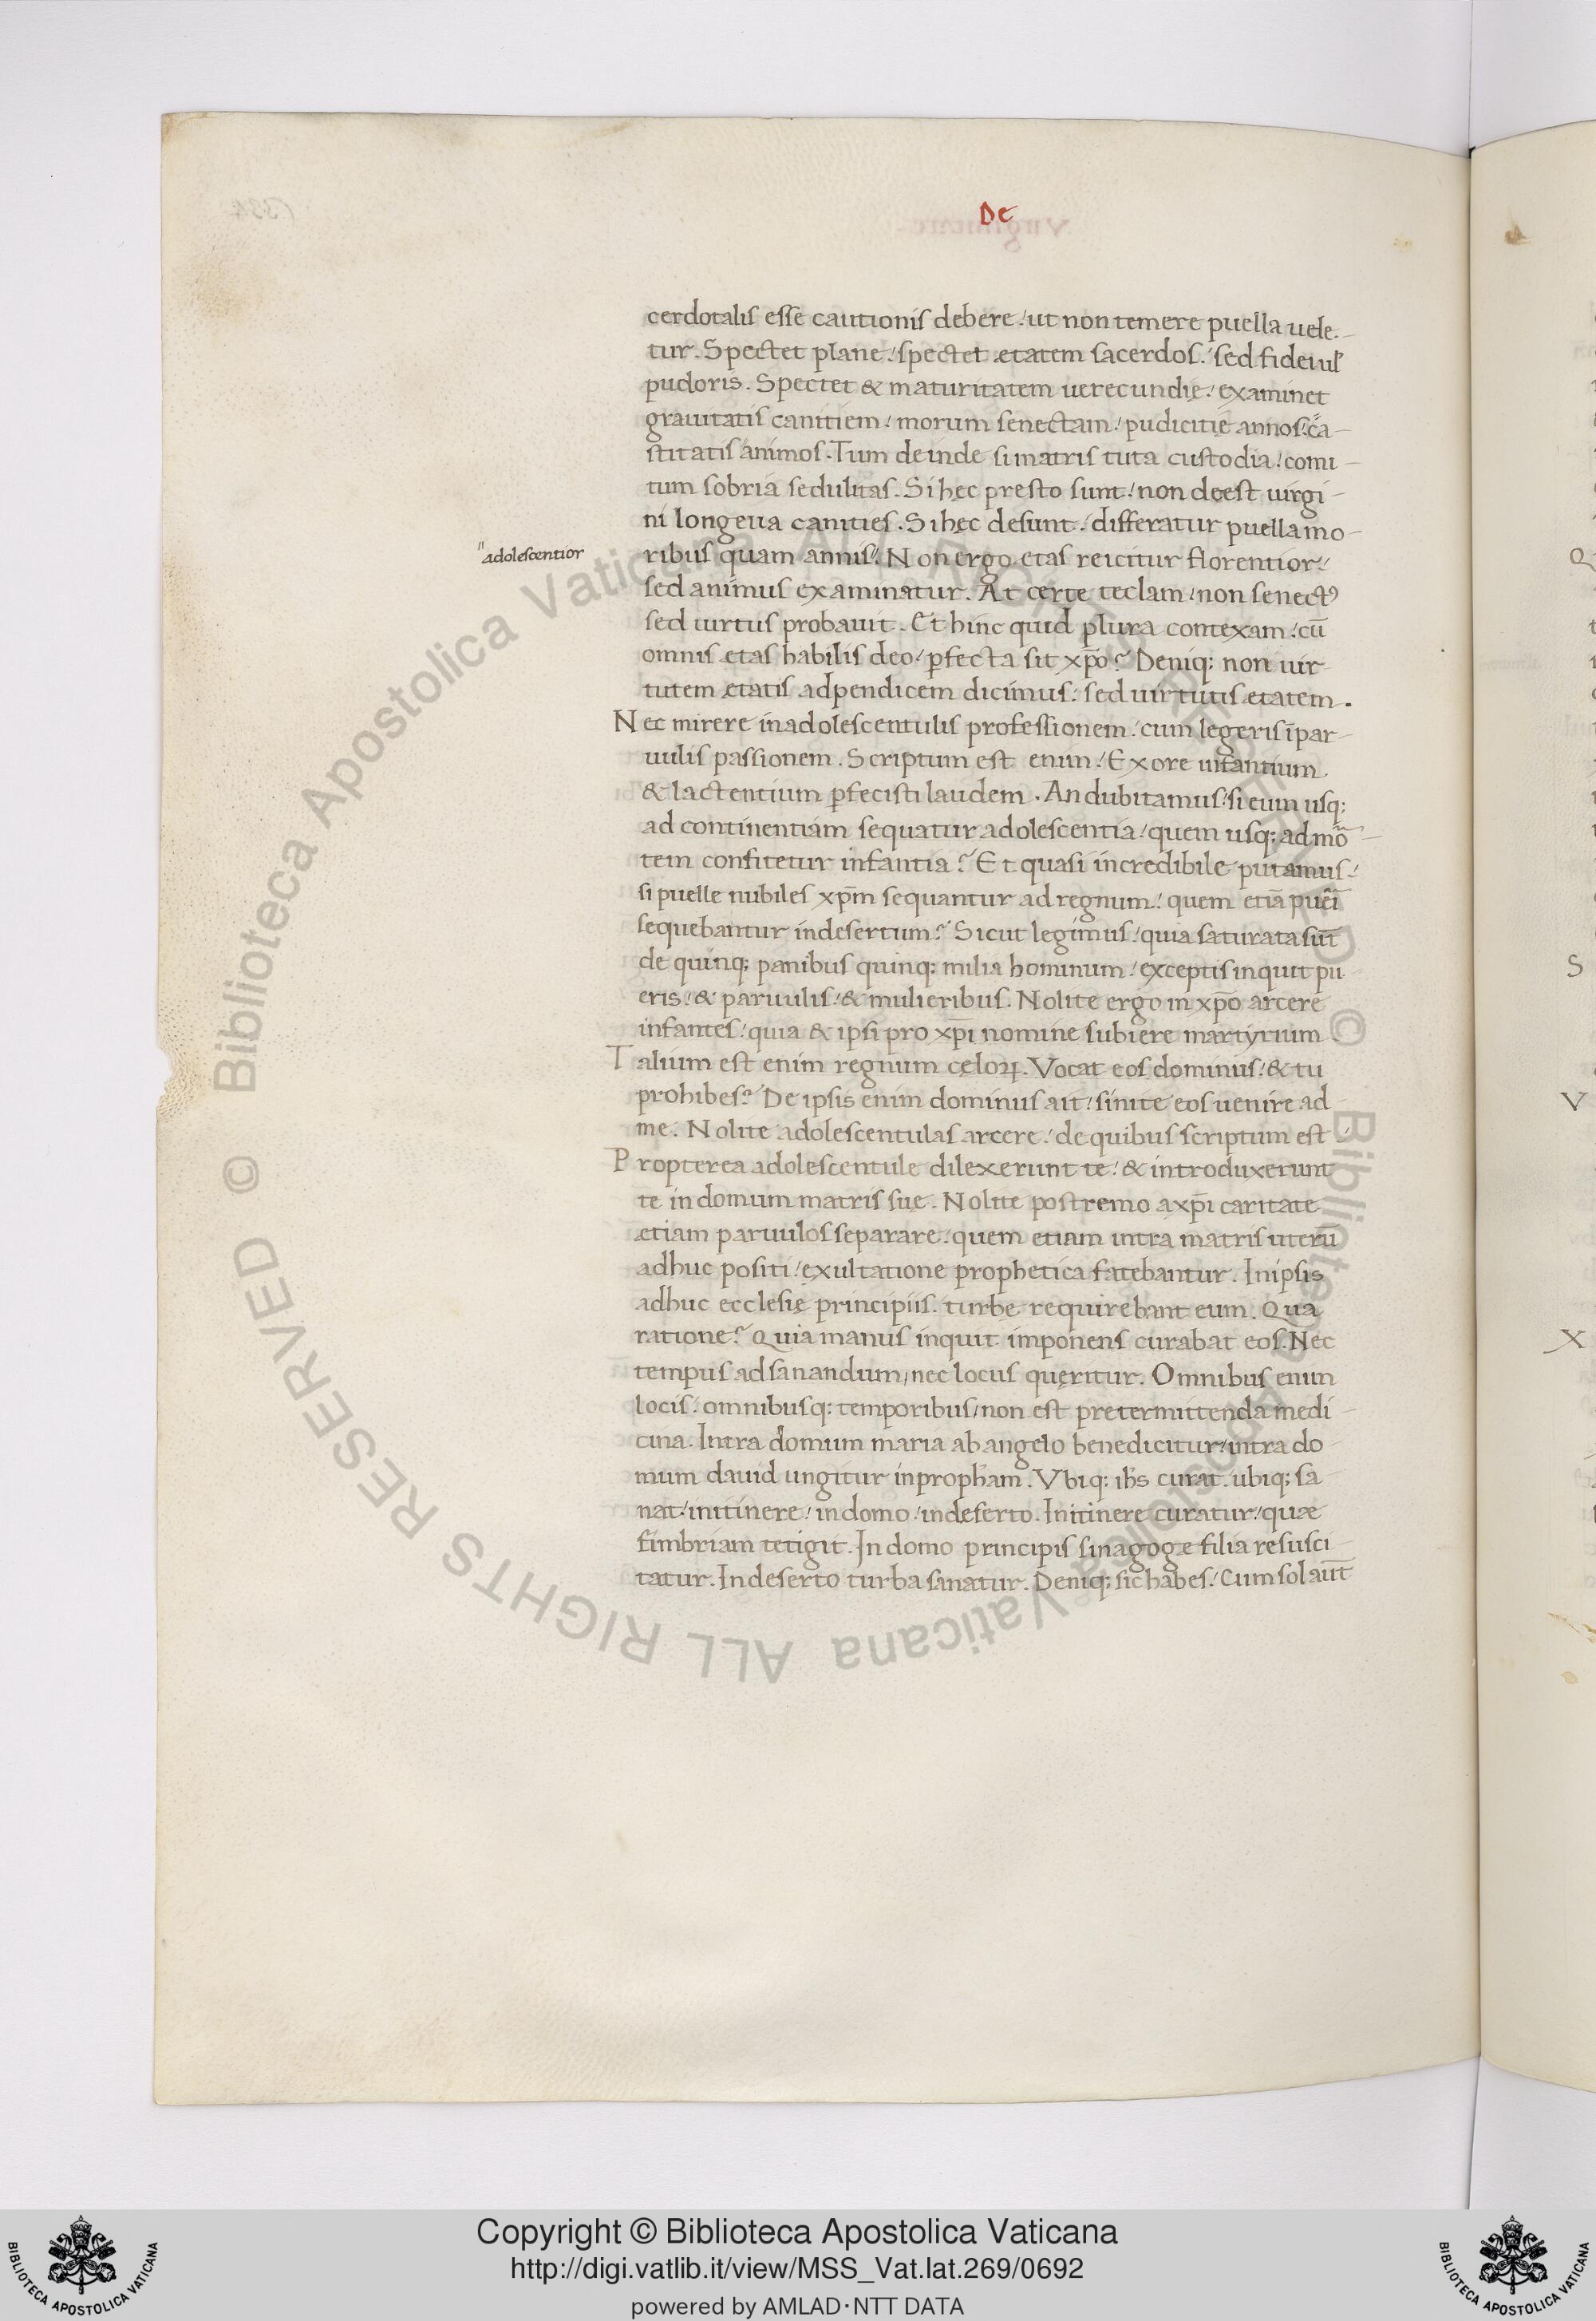 De
cerdotalis esse cautionis debere / ut non temere puella uele-
tur. Spectet plane / spectet etatem sacerdos / sed fidei ul
pudoris. Spectet & maturitatem uerecundię / examinet
grauitatis canitiem / morum senectam / pudicitię annos / ca-
stitatis animos. Tum deinde si matris tuta custodia / comi-
tum sobria sedulitas. Si hęc presto sunt / non deest uirgi-
ni longeua canities. Si hęc desunt / differatur puella mo-
"adolescentior
ribus quam annis". Non ergo etas reicitur florentior /
sed animus examinatur. At certe teclam / non senectꝰ
sed uirtus probauit. Et hinc quid plura contexam / cū
omnis etas habilis deo / ꝑfecta sit xp̄o? Deniq; non uir-
tutem etatis adpendicem dicimus / sed uirtutis etatem.
Nec mirere in adolescentulis professionem / cum legeris ī par-
uulis passionem. Scriptum est enim / Ex ore infantium
& lactentium ꝑfecisti laudem. An dubitamus / si eum usq;
ad continentiam sequatur adolescentia / quem usq; ad mo
tem confitetur infantia? Et quasi incredibile putamus /
si puelle nubiles xp̄m sequantur ad regnum / quem etiā pueri
sequebantur in desertum? Sicut legimus / quia saturata sūt
de quinq; panibus quinq; milia hominum / exceptis inquit pu
eris / & paruulis / & mulieribus. Nolite ergo in xp̄o arcere
infantes / quia & ipsi pro xp̄i nomine subiere martyrium.
Talium est enim regnum cęloꝝ. Vocat eos dominus / & tu
prohibes? De ipsis enim dominus ait / sinite eos uenire ad
me. Nolite adolescentulas arcere / de quibus scriptum est /
Propterea adolescentule dilexerunt te / & introduxerunt
te in domum matris suę. Nolite postremo a xp̄i caritate
etiam paruulos separare / quem etiam intra matris uterū
adhuc positi / exultatione prophetica fatebantur. In ipsis
adhuc ecclesię principiis turbę requirebant eum. Qua
ratione? Quia manus inquit imponens curabat eos. Nec
tempus ad sanandum / nec locus quęritur. Omnibus enim
locis / omnibusq; temporibus / non est pretermittenda medi-
cina. Intra domum maria ab angelo benedicitur / intra do-
mum dauid ungitur in proph̄am. Vbiq; ih̄s curat ubiq; sa-
nat / in itinere / in domo / in deserto. In itinere curatur / quæ
fimbriam tetigit. In domo principis sinagogæ filia resusci-
tatur. In deserto turba sanatur. Deniq; sic habes / Cum sol aūt
Q
S
V
X
© Biblioteca Apostolica Vaticana ALL RIGHTS RESERVED © Biblioteca Apostolica Vaticana ALL RIGHTS RESERVED
Copyright © Biblioteca Apostolica Vaticana
http://digi.vatlib.it/view/MSS_Vat.lat.269/0692
powered by AMLAD·NTT DATA
BIBLIOTECA APOSTOLICA VATICANA
BIBLIOTECA APOSTOLICA VATICANA